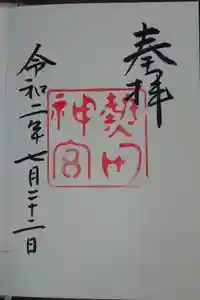 奉拝
熱田
神宮
令和二年七月二十二日